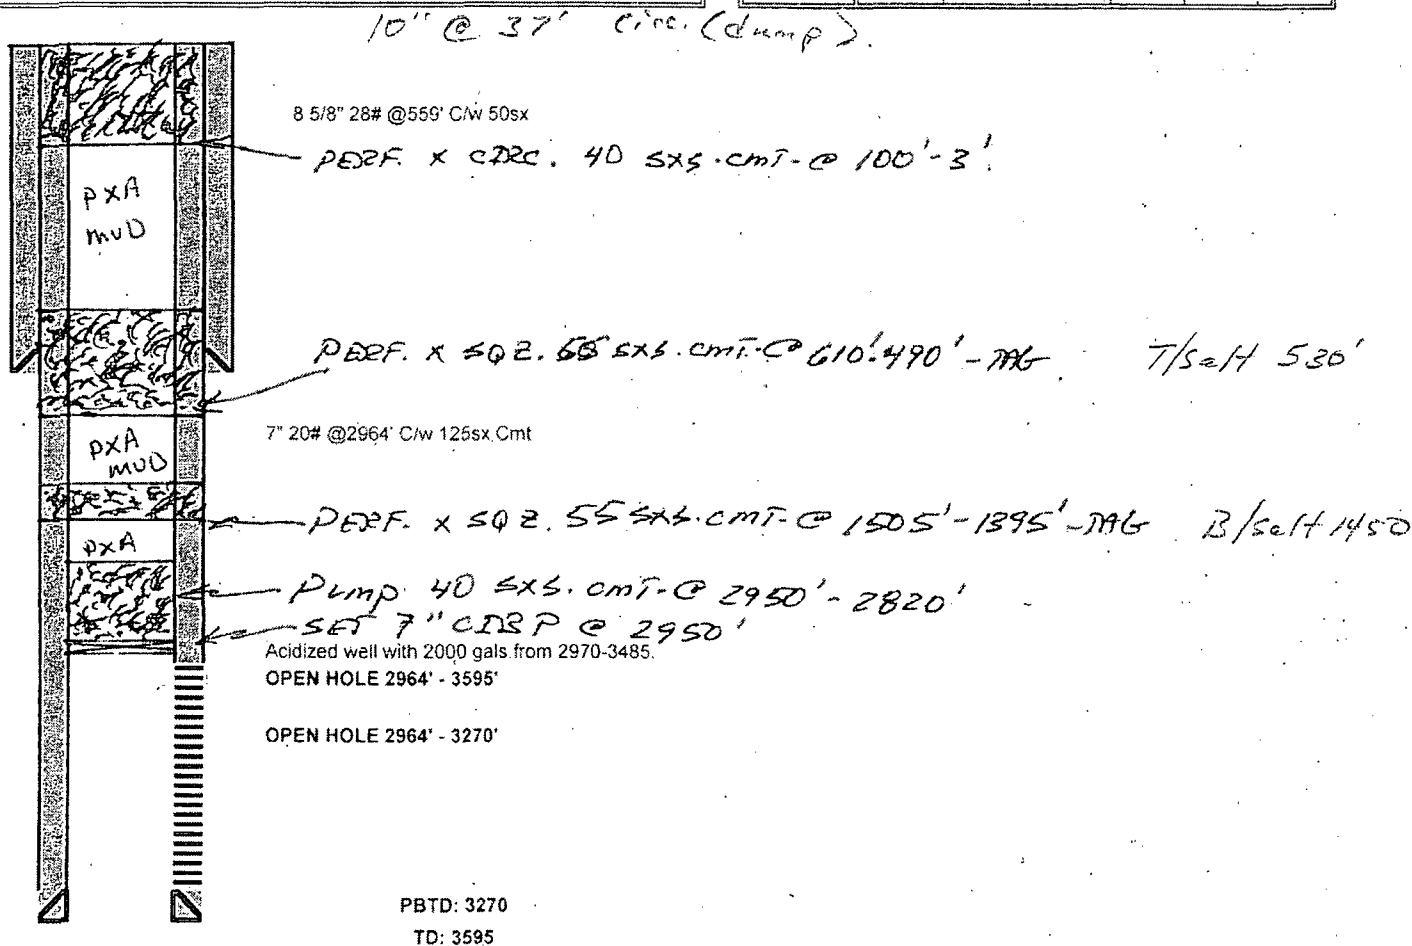 10" @ 37' circ. (dump).
8 5/8" 28# @559' C/w 50sx
PERF. X CIRC. 40 SXS. CMT. @ 100'-3'.
PXA
MUD
PERF. X SQZ. SXS. CMT. @ 610'-490' - TAG T/Salt 530'
7" 20# @2964' C/w 125sx Cmt
PXA
MUD
PERF. X SQZ. 55 SXS. CMT. @ 1505'-1395' - TAG B/Salt 1450
PXA
Pump 40 SXS. CMT. @ 2950' - 2820'
SET 7" CIBP @ 2950'
Acidized well with 2000 gals from 2970-3485.
OPEN HOLE 2964' - 3595'
OPEN HOLE 2964' - 3270'
PBTD: 3270
TD: 3595